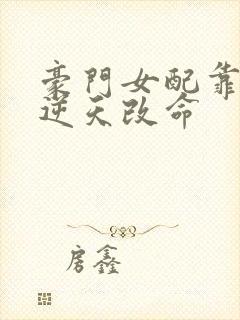 豪門女配靠
逆天改命
房鑫